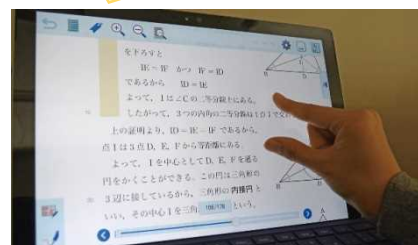 を下ろすと
IE = IF かつ IF = ID
であるから ID = IE
よって、Iは∠Cの二等分線上にある。
したがって、3つの内角の二等分線は1点Iで交わ
上の証明より、ID = IE = IFであるから、
点Iは3点D、E、Fから等距離にある。
よって、Iを中心としてD、E、Fを通る
円をかくことができる。この円は三角形の
3辺に接しているから、三角形の内接円と
いい、その中心Iを三角 という。